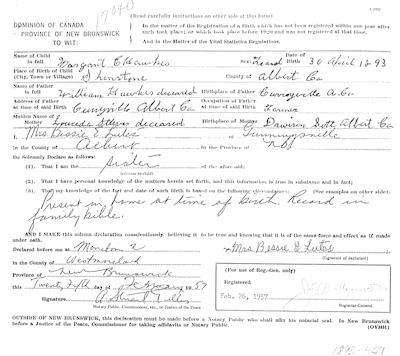 17040
DOMINION OF CANADA
PROVINCE OF NEW BRUNSWICK
TO WIT:
(Read carefully instructions on other side of this form)
In the matter of the Registration of a Birth which has not been registered within one year after
such took place; or which took place before 1920 and was not registered at that time.
And in the Matter of the Vital Statistics Regulations.
Name of Child in full Margaret E Hawkes Sex Date of Birth 30 April 1893
Place of Birth of Child (City, Town or Village) County of Albert Co
Name of Father in full William Hawkes deceased Birthplace of Father Curryville A. Co
Address of Father at time of said Birth Curryville Albert Co Occupation of Father at time of said Birth Farmer
Maiden Name of Mother Steeves deceased Birthplace of Mother Albert Co
I, Mrs. Bessie E. Lutes of
in the County of Albert in the Province of N.B.
Do Solemnly Declare as follows:
(1) That I am the sister of the aforesaid;
(2) That I have personal knowledge of the matters herein set forth, and this information is true in substance and in fact;
(3) That my knowledge of the fact and date of such birth is based on the following circumstances: (See examples on other side).
Present in home at time of birth Record in
family bible.
AND I make this solemn declaration conscientiously believing it to be true and knowing that it is of the same force and effect as if made
under oath.
Declared before me at Moncton
in the County of Westmorland
Province of New Brunswick
this Twenty Fifth day of 1957
Signature
Notary Public, Commissioner, etc., or Justice of the Peace
Mrs Bessie E Lutes
(Signature of declarant)
(For use of Reg.-Gen. only)
Registered
Feb. 26, 1957
Registrar General
OUTSIDE OF NEW BRUNSWICK, this declaration must be made before a Notary Public who shall affix his notarial seal. In New Brunswick
before a Justice of the Peace, Commissioner for taking affidavits or Notary Public.